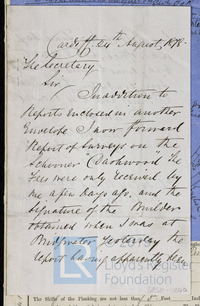 Cardiff, 24th August, 1878.
The Secretary
Sir,
In addition to
Reports enclosed in another
Envelope I now forward
Report of Surveys on the
Schooner "Dashwood" The
Fees were only received by
me a few days ago, and the
Signature of the Builder
obtained when I was at
Bridgwater Yesterday the
report having apparently been
Lloyd's Register
Foundation
The Skifts of the Planking are not less than